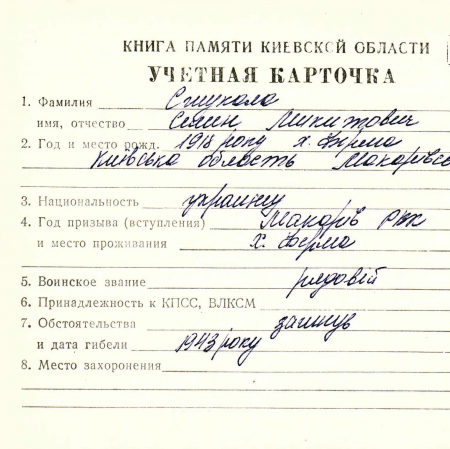 КНИГА ПАМЯТИ КИЕВСКОЙ ОБЛАСТИ
УЧЕТНАЯ КАРТОЧКА
1. Фамилия Стукала
имя, отчество Семен Микитович
2. Год и место рожд. 1918 року х. Ферма
Київська область Макарівсь
3. Национальность украинец
4. Год призыва (вступления) Макарів РВК
и место проживания х. Ферма
5. Воинское звание рядовий
6. Принадлежность к КПСС, ВЛКСМ
7. Обстоятельства загинув
и дата гибели 1943 року
8. Место захоронения